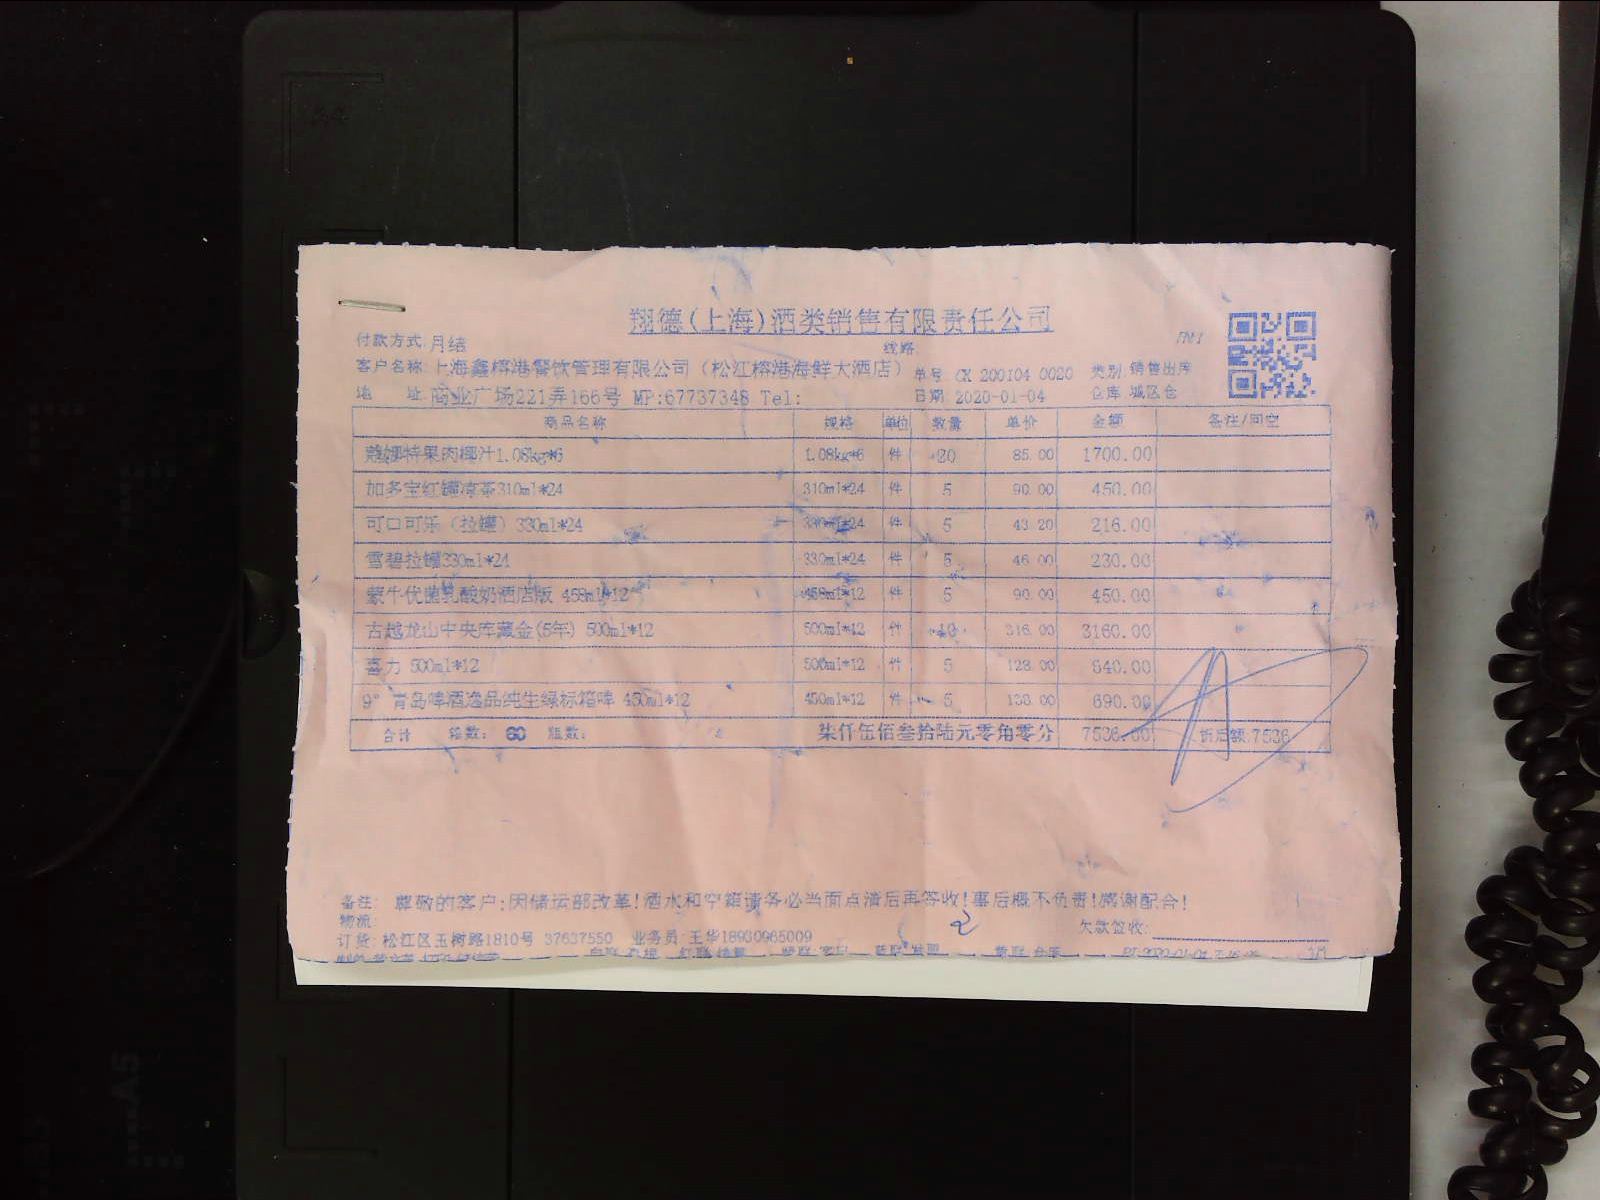 翔德(上海)酒类销售有限责任公司
付款方式:月结 线路:
客户名称:上海鑫榕港餐饮管理有限公司（松江榕港海鲜大酒店） 单号: CK 200104 0020 类别:销售出库
地 址:商业广场221弄166号 MP:67737348 Tel: 日期:2020-01-04 仓库:城区仓
商品名称 规格 单位 数量 单价 金额 备注/回空
蔻娜特果肉椰汁1.08kg*6 1.08kg*6 件 20 85.00 1700.00
加多宝红罐凉茶310ml*24 310ml*24 件 5 90.00 450.00
可口可乐（拉罐）330ml*24 330ml*24 件 5 43.20 216.00
雪碧拉罐330ml*24 330ml*24 件 5 46.00 230.00
蒙牛优菌乳酸奶酒店版 458ml*12 458ml*12 件 5 90.00 450.00
古越龙山中央库藏金(5年) 500ml*12 500ml*12 件 10 316.00 3160.00
喜力 500ml*12 500ml*12 件 5 128.00 640.00
9° 青岛啤酒逸品纯生绿标箱啤 450ml*12 450ml*12 件 5 138.00 690.00
合计 箱数: 60 瓶数: 柒仟伍佰叁拾陆元零角零分 7536.00 折后额:7536
备注: 尊敬的客户:因储运部改革!酒水和空箱请务必当面点清后再签收!事后概不负责!感谢配合!
物流: 2 欠款签收:
订货:松江区玉树路1810号 37637550 业务员:王华18930965009